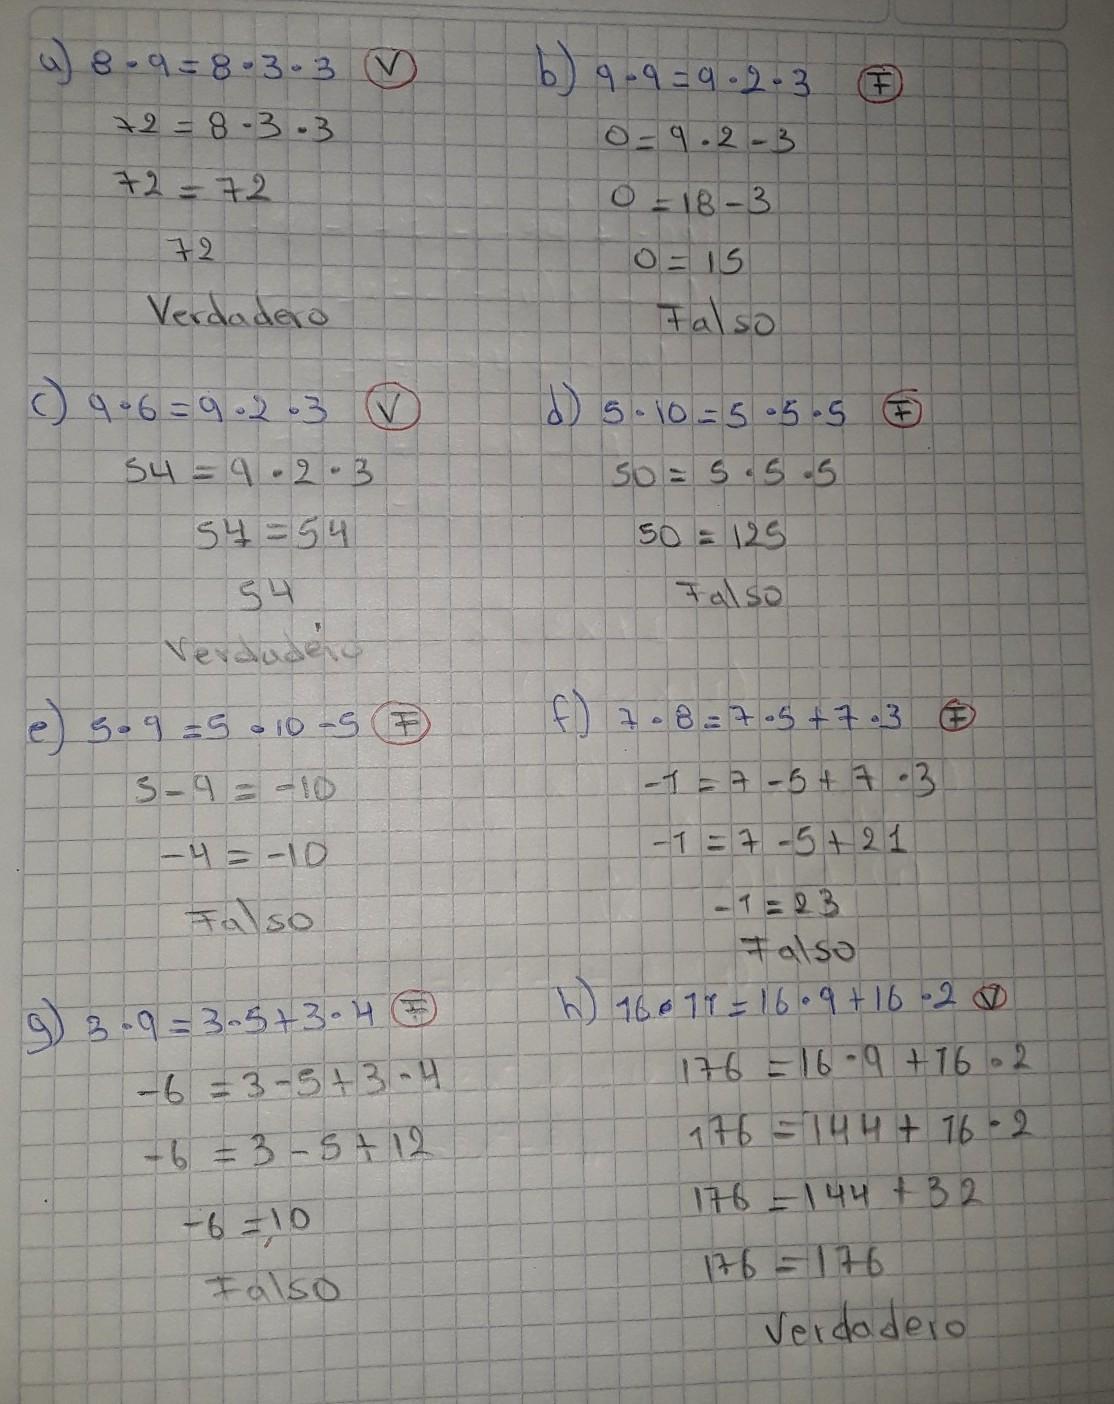 a) 8·9=8·3·3 V
72=8·3·3
72=72
72
Verdadero
b) 9·9=9·2·3 F
0=9·2-3
0=18-3
0=15
Falso
c) 9·6=9·2·3 V
54=9·2·3
54=54
54
Verdadero
d) 5·10=5·5·5 F
50=5·5·5
50=125
Falso
e) 5·9=5·10-5 F
5-9=-10
-4=-10
Falso
f) 7·8=7·5+7·3 F
-1=7-5+7·3
-1=7-5+21
-1=23
Falso
g) 3·9=3·5+3·4 F
-6=3-5+3·4
-6=3-5+12
-6=10
Falso
h) 16·11=16·9+16·2 V
176=16·9+16·2
176=144+16·2
176=144+32
176=176
Verdadero